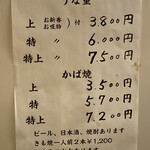 うな重
上 お新香 お吸物 )付 3.800円
特 〃 6.000円
特上 〃 7.500円
かば焼
上 3.500円
特 5.700円
特上 7.200円
ビール、日本酒、焼酎あります
きも焼一人前2本¥1,200